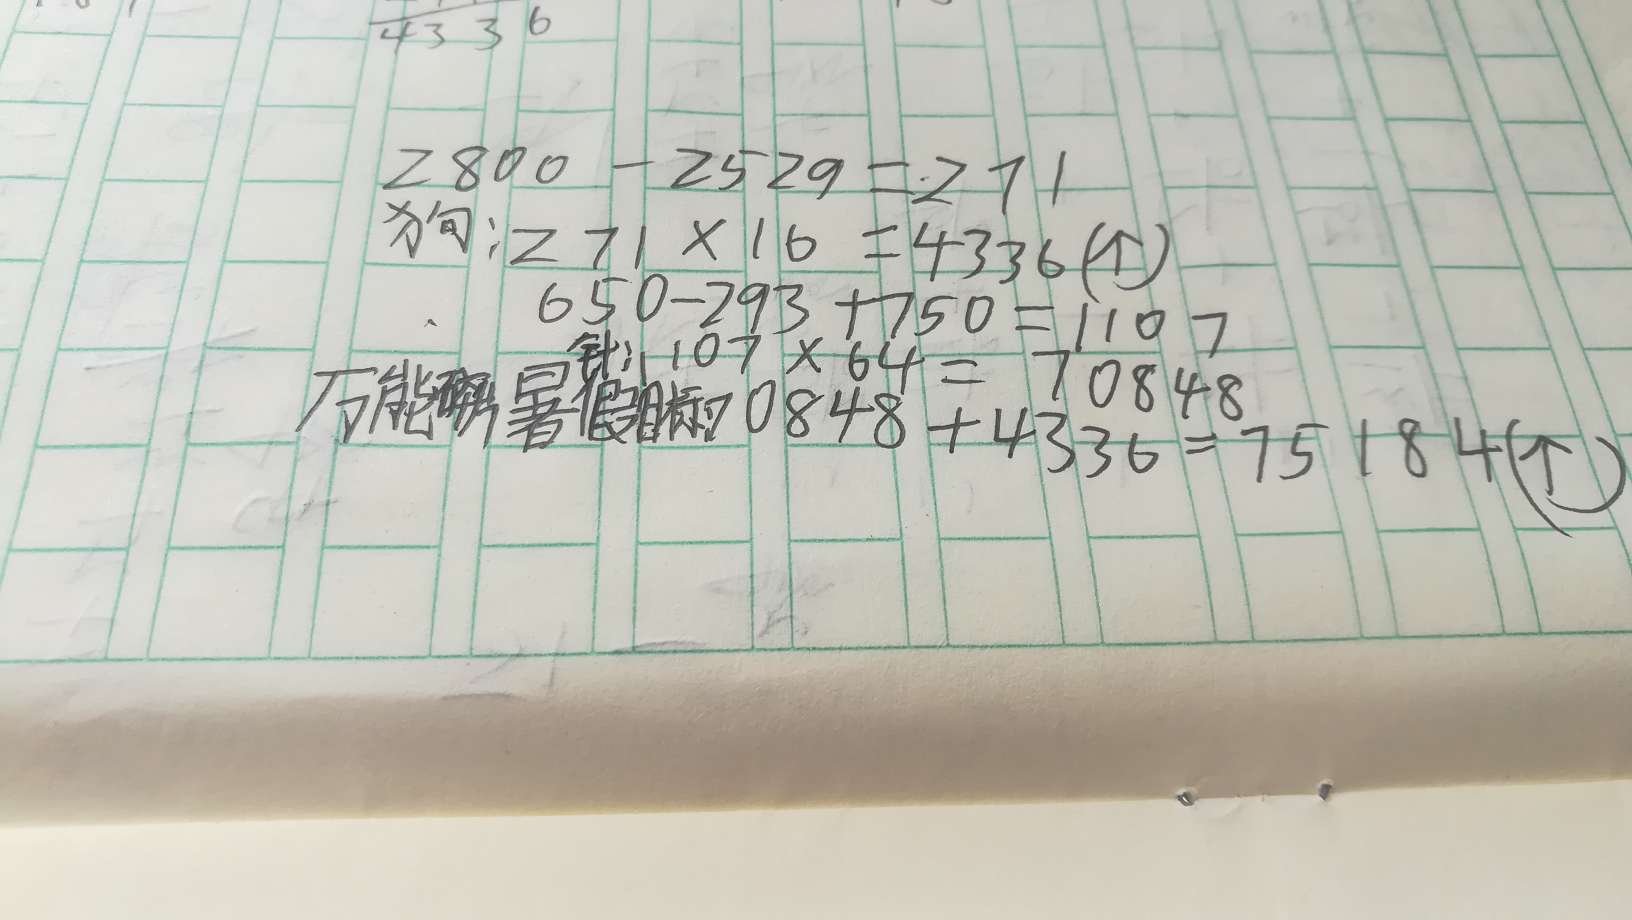 4336
2800-2529=271
狗:271×16=4336(↑)
650-293+750=1107
针:1107×64=70848
万能磚暑假目标:70848+4336=75184(↑)